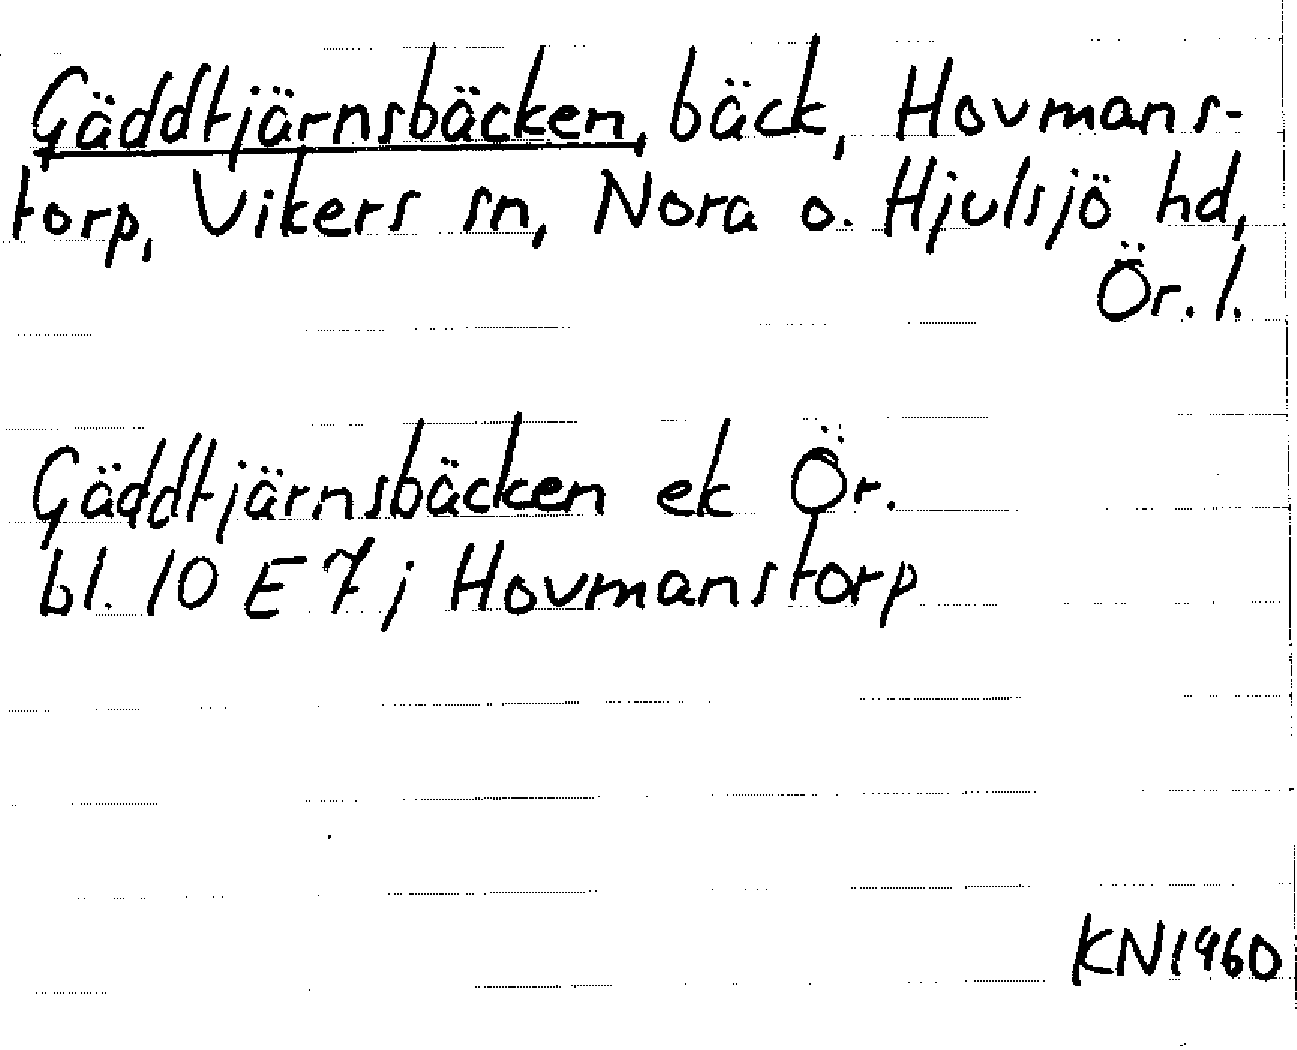 Gäddtjärnsbäcken, bäck, Hovmans-
torp, Vikers sn, Nora o. Hjulsjö hd,
Ör. l.
Gäddtjärnsbäcken ek Ör.
bl. 10 E 7 j Hovmanstorp
KN1960